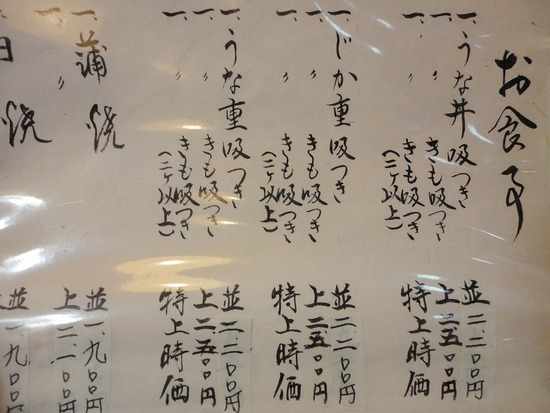 お食事
一、うな丼 吸つき 並 二、二〇〇円
一、〃 きも吸つき 上 二、五〇〇円
一、〃 きも吸つき(二ヶ以上) 特上時価
一、じか重 吸つき 並 二、二〇〇円
一、〃 きも吸つき 上 二、五〇〇円
一、〃 きも吸つき(二ヶ以上) 特上時価
一、うな重 吸つき 並 二、二〇〇円
一、〃 きも吸つき 上 二、五〇〇円
一、〃 きも吸つき(二ヶ以上) 特上時価
一、蒲焼 並 一、九〇〇円
一、〃 上 二、一〇〇円
焼 並 一、九〇〇円